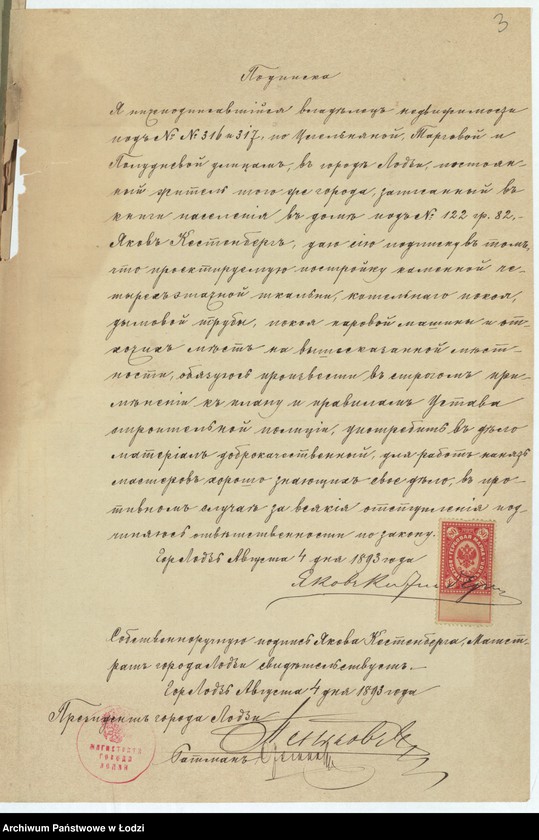 3
Подписка
Я нижеподписавшійся владѣлецъ недвижимости
подъ №№ 316 и 317, по Цегельняной, Марговой и
Полудневой улицамъ, въ городѣ Лодзи, постоян-
ный житель того же города, записанный въ
книги населенія въ домѣ подъ № 122 стр. 82.-
Яковъ Кестенбергъ, даю сію подписку въ томъ,
что проектируемую постройку каменной че-
тырехъэтажной ткальни, котельнаго покоя,
дымовой трубы, покоя паровой машины и от-
хожихъ мѣстъ на вышесказанной мѣст-
ности, обязуюсь произвести въ строгомъ при-
мѣненіи къ плану и правиламъ Устава
строительной полиціи, употребить въ дѣло
матеріалъ доброкачественный, для работъ нанять
мастеровъ хорошо знающихъ свое дѣло, въ про-
тивномъ случаѣ за всякія отступленія под-
чиняюсь отвѣтственности по закону.
Гор. Лодзь Августа 4 дня 1893 года
Яковъ Кестенбергъ
Собственноручную подпись Якова Кестенберга, Магист-
ратъ города Лодзи свидѣтельствуетъ.-
Гор. Лодзь Августа 4 дня 1893 года
Президентъ города Лодзи
МАГИСТРАТЪ
ГОРОДА
ЛОДЗИ
Archiwum Państwowe w Łodzi